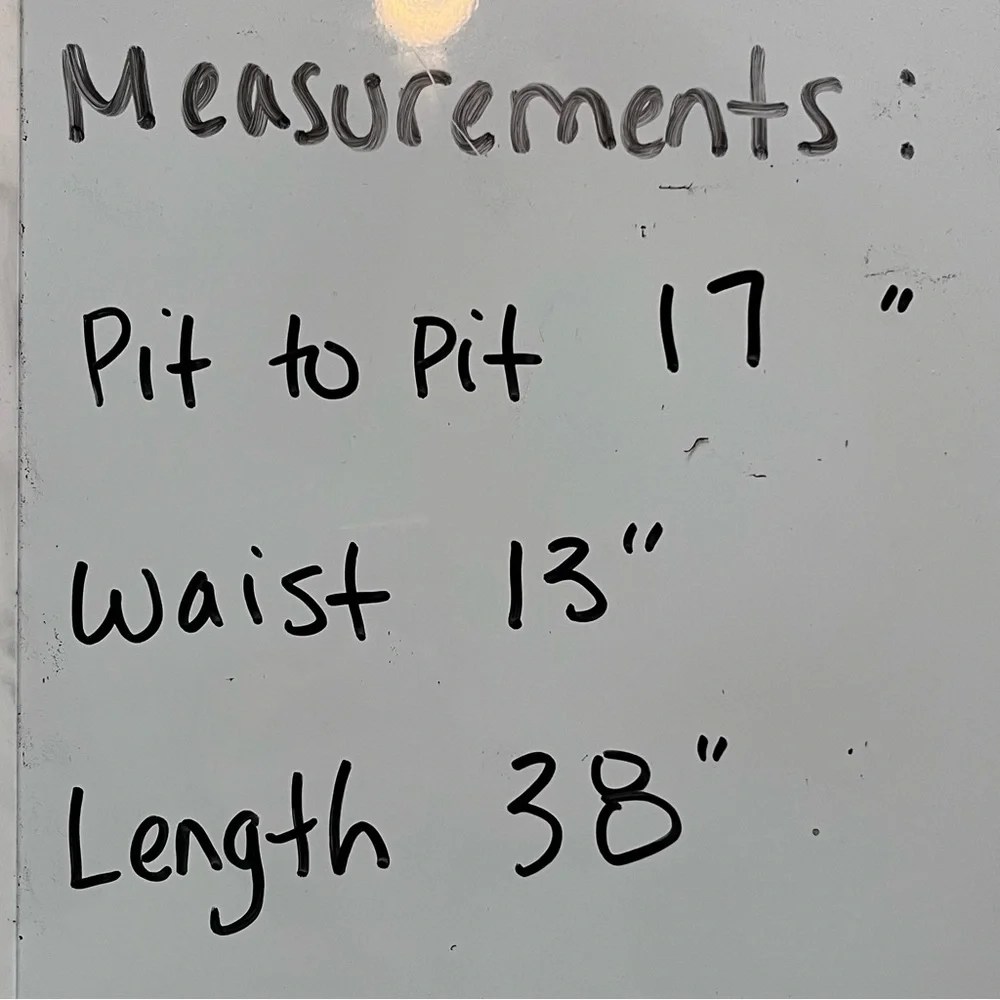 Measurements:
Pit to Pit 17 "
Waist 13"
Length 38"